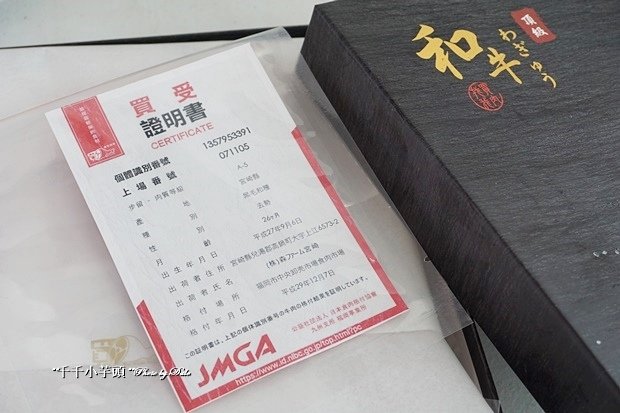 買受
證明書
CERTIFICATE
個體識別番號 1357953391
上場番號 071105
步留・肉質等級 A-5
產地 宮崎縣
種別 黑毛和種
性別 去勢
月齡 26ヶ月
出生年月日 平成27年9月6日
出荷者住所 宮崎縣兒湯郡高鍋町大字上江6573-2
出荷者氏名 (株)森ファーム宮崎
格付場所 福岡市中央卸売市場食肉市場
格付年月日 平成29年12月7日
この証明書は、上記の個体識別番号の牛肉の格付結果を証明しています。
公益社団法人 日本食肉格付協會
九州支所 福岡事業所
JMGA
https://www.id.nlbc.go.jp/top.html?pc
頂級
和牛
わぎゅう
"千千小芋頭"